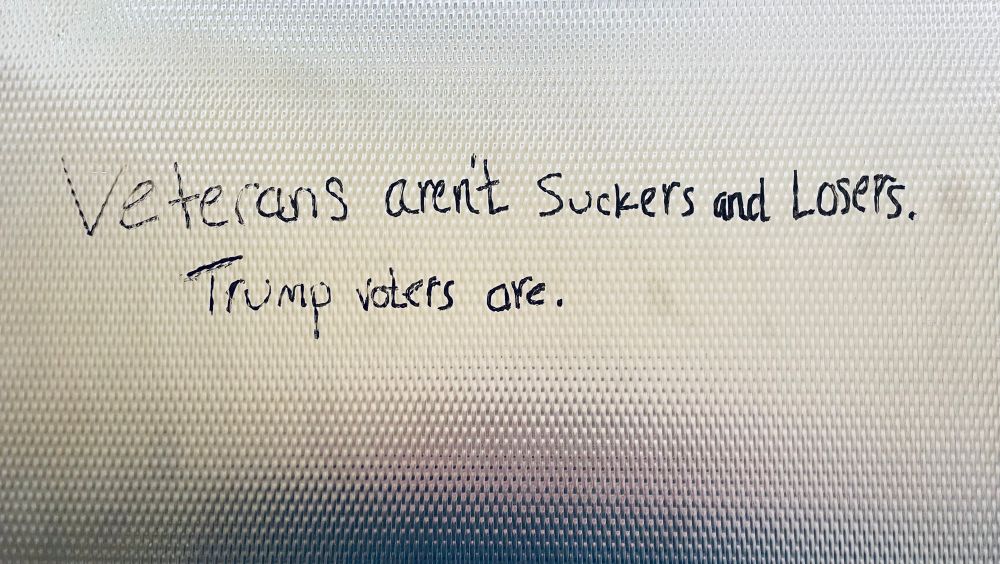 Veterans aren't Suckers and Losers.
Trump voters are.